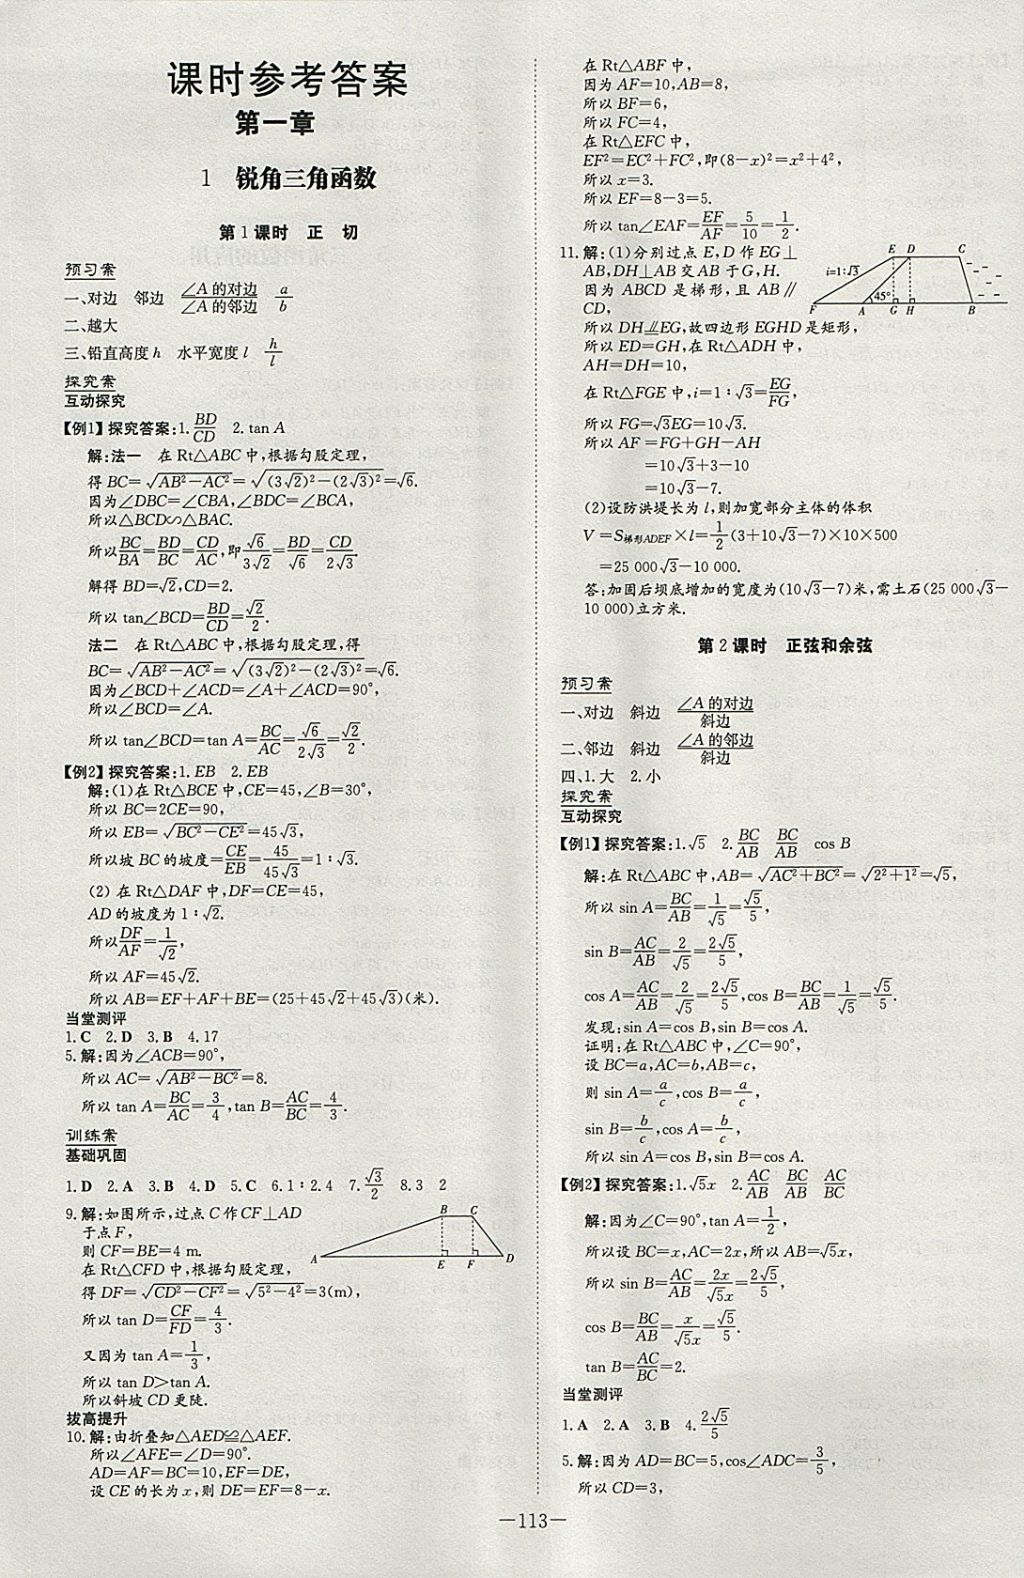 课时参考答案
第一章
1 锐角三角函数
第1课时 正 切
预习案
一、对边 邻边 ∠A的对边/∠A的邻边 a/b
二、越大
三、铅直高度h 水平宽度l h/l
探究案
互动探究
【例1】探究答案:1.BD/CD 2.tan A
解:法一 在Rt△ABC中,根据勾股定理,
得BC=√(AB²−AC²)=√((3√2)²−(2√3)²)=√6.
因为∠DBC=∠CBA,∠BDC=∠BCA,
所以△BCD∽△BAC.
所以BC/BA=BD/BC=CD/AC,即√6/3√2=BD/√6=CD/2√3.
解得BD=√2,CD=2.
所以tan∠BCD=BD/CD=√2/2.
法二 在Rt△ABC中,根据勾股定理,得
BC=√(AB²−AC²)=√((3√2)²−(2√3)²)=√6.
因为∠BCD+∠ACD=∠A+∠ACD=90°,
所以∠BCD=∠A.
所以tan∠BCD=tan A=BC/AC=√6/2√3=√2/2.
【例2】探究答案:1.EB 2.EB
解:(1)在Rt△BCE中,CE=45,∠B=30°,
所以BC=2CE=90,
所以EB=√(BC²−CE²)=45√3,
所以坡BC的坡度=CE/EB=45/45√3=1∶√3.
(2)在Rt△DAF中,DF=CE=45,
AD的坡度为1∶√2.
所以DF/AF=1/√2,
所以AF=45√2.
所以AB=EF+AF+BE=(25+45√2+45√3)(米).
当堂测评
1.C 2.D 3.B 4.17
5.解:因为∠ACB=90°,
所以AC=√(AB²−BC²)=8.
所以tan A=BC/AC=3/4,tan B=AC/BC=4/3.
训练案
基础巩固
1.D 2.A 3.B 4.D 5.C 6.1∶2.4 7.√3/2 8.3 2
9.解:如图所示,过点C作CF⊥AD
于点F,
则CF=BE=4 m.
在Rt△CFD中,根据勾股定理,
得DF=√(CD²−CF²)=√(5²−4²)=3(m),
所以tan D=CF/FD=4/3.
又因为tan A=1/3,
所以tan D>tan A.
所以斜坡CD更陡.
B C
A E F D
拔高提升
10.解:由折叠知△AED≌△AEF.
所以∠AFE=∠D=90°.
AD=AF=BC=10,EF=DE,
设CE的长为x,则DE=EF=8−x.
在Rt△ABF中,
因为AF=10,AB=8,
所以BF=6,
所以FC=4,
在Rt△EFC中,
EF²=EC²+FC²,即(8−x)²=x²+4²,
所以x=3.
所以EF=8−3=5.
所以tan∠EAF=EF/AF=5/10=1/2.
11.解:(1)分别过点E,D作EG⊥
AB,DH⊥AB交AB于G,H.
因为ABCD是梯形,且AB∥
CD,
所以DH⫽EG,故四边形EGHD是矩形,
所以ED=GH,在Rt△ADH中,
AH=DH=10,
在Rt△FGE中,i=1∶√3=EG/FG,
所以FG=√3EG=10√3.
所以AF=FG+GH−AH
=10√3+3−10
=10√3−7.
E D C
i=1∶√3
45°
F A G H B
(2)设防洪堤长为l,则加宽部分主体的体积
V=S梯形ADEF×l=1/2(3+10√3−7)×10×500
=25 000√3−10 000.
答:加固后坝底增加的宽度为(10√3−7)米,需土石(25 000√3−
10 000)立方米.
第2课时 正弦和余弦
预习案
一、对边 斜边 ∠A的对边/斜边
二、邻边 斜边 ∠A的邻边/斜边
四、1.大 2.小
探究案
互动探究
【例1】探究答案:1.√5 2.BC/AB BC/AB cos B
解:在Rt△ABC中,AB=√(AC²+BC²)=√(2²+1²)=√5,
所以sin A=BC/AB=1/√5=√5/5,
sin B=AC/AB=2/√5=2√5/5,
cos A=AC/AB=2/√5=2√5/5,cos B=BC/AB=1/√5=√5/5.
发现:sin A=cos B,sin B=cos A.
证明:在Rt△ABC中,∠C=90°,
设BC=a,AC=b,AB=c,
则sin A=a/c,cos B=a/c,
sin B=b/c,cos A=b/c,
所以sin A=cos B,sin B=cos A.
【例2】探究答案:1.√5x 2.AC/AB BC/AB AC/BC
解:因为∠C=90°,tan A=1/2,
所以设BC=x,AC=2x,所以AB=√5x,
所以sin B=AC/AB=2x/√5x=2√5/5,
cos B=BC/AB=x/√5x=√5/5.
tan B=AC/BC=2.
当堂测评
1.A 2.A 3.B 4.2√5/5
5.解:因为AD=BC=5,cos∠ADC=3/5,
所以CD=3,
—113—